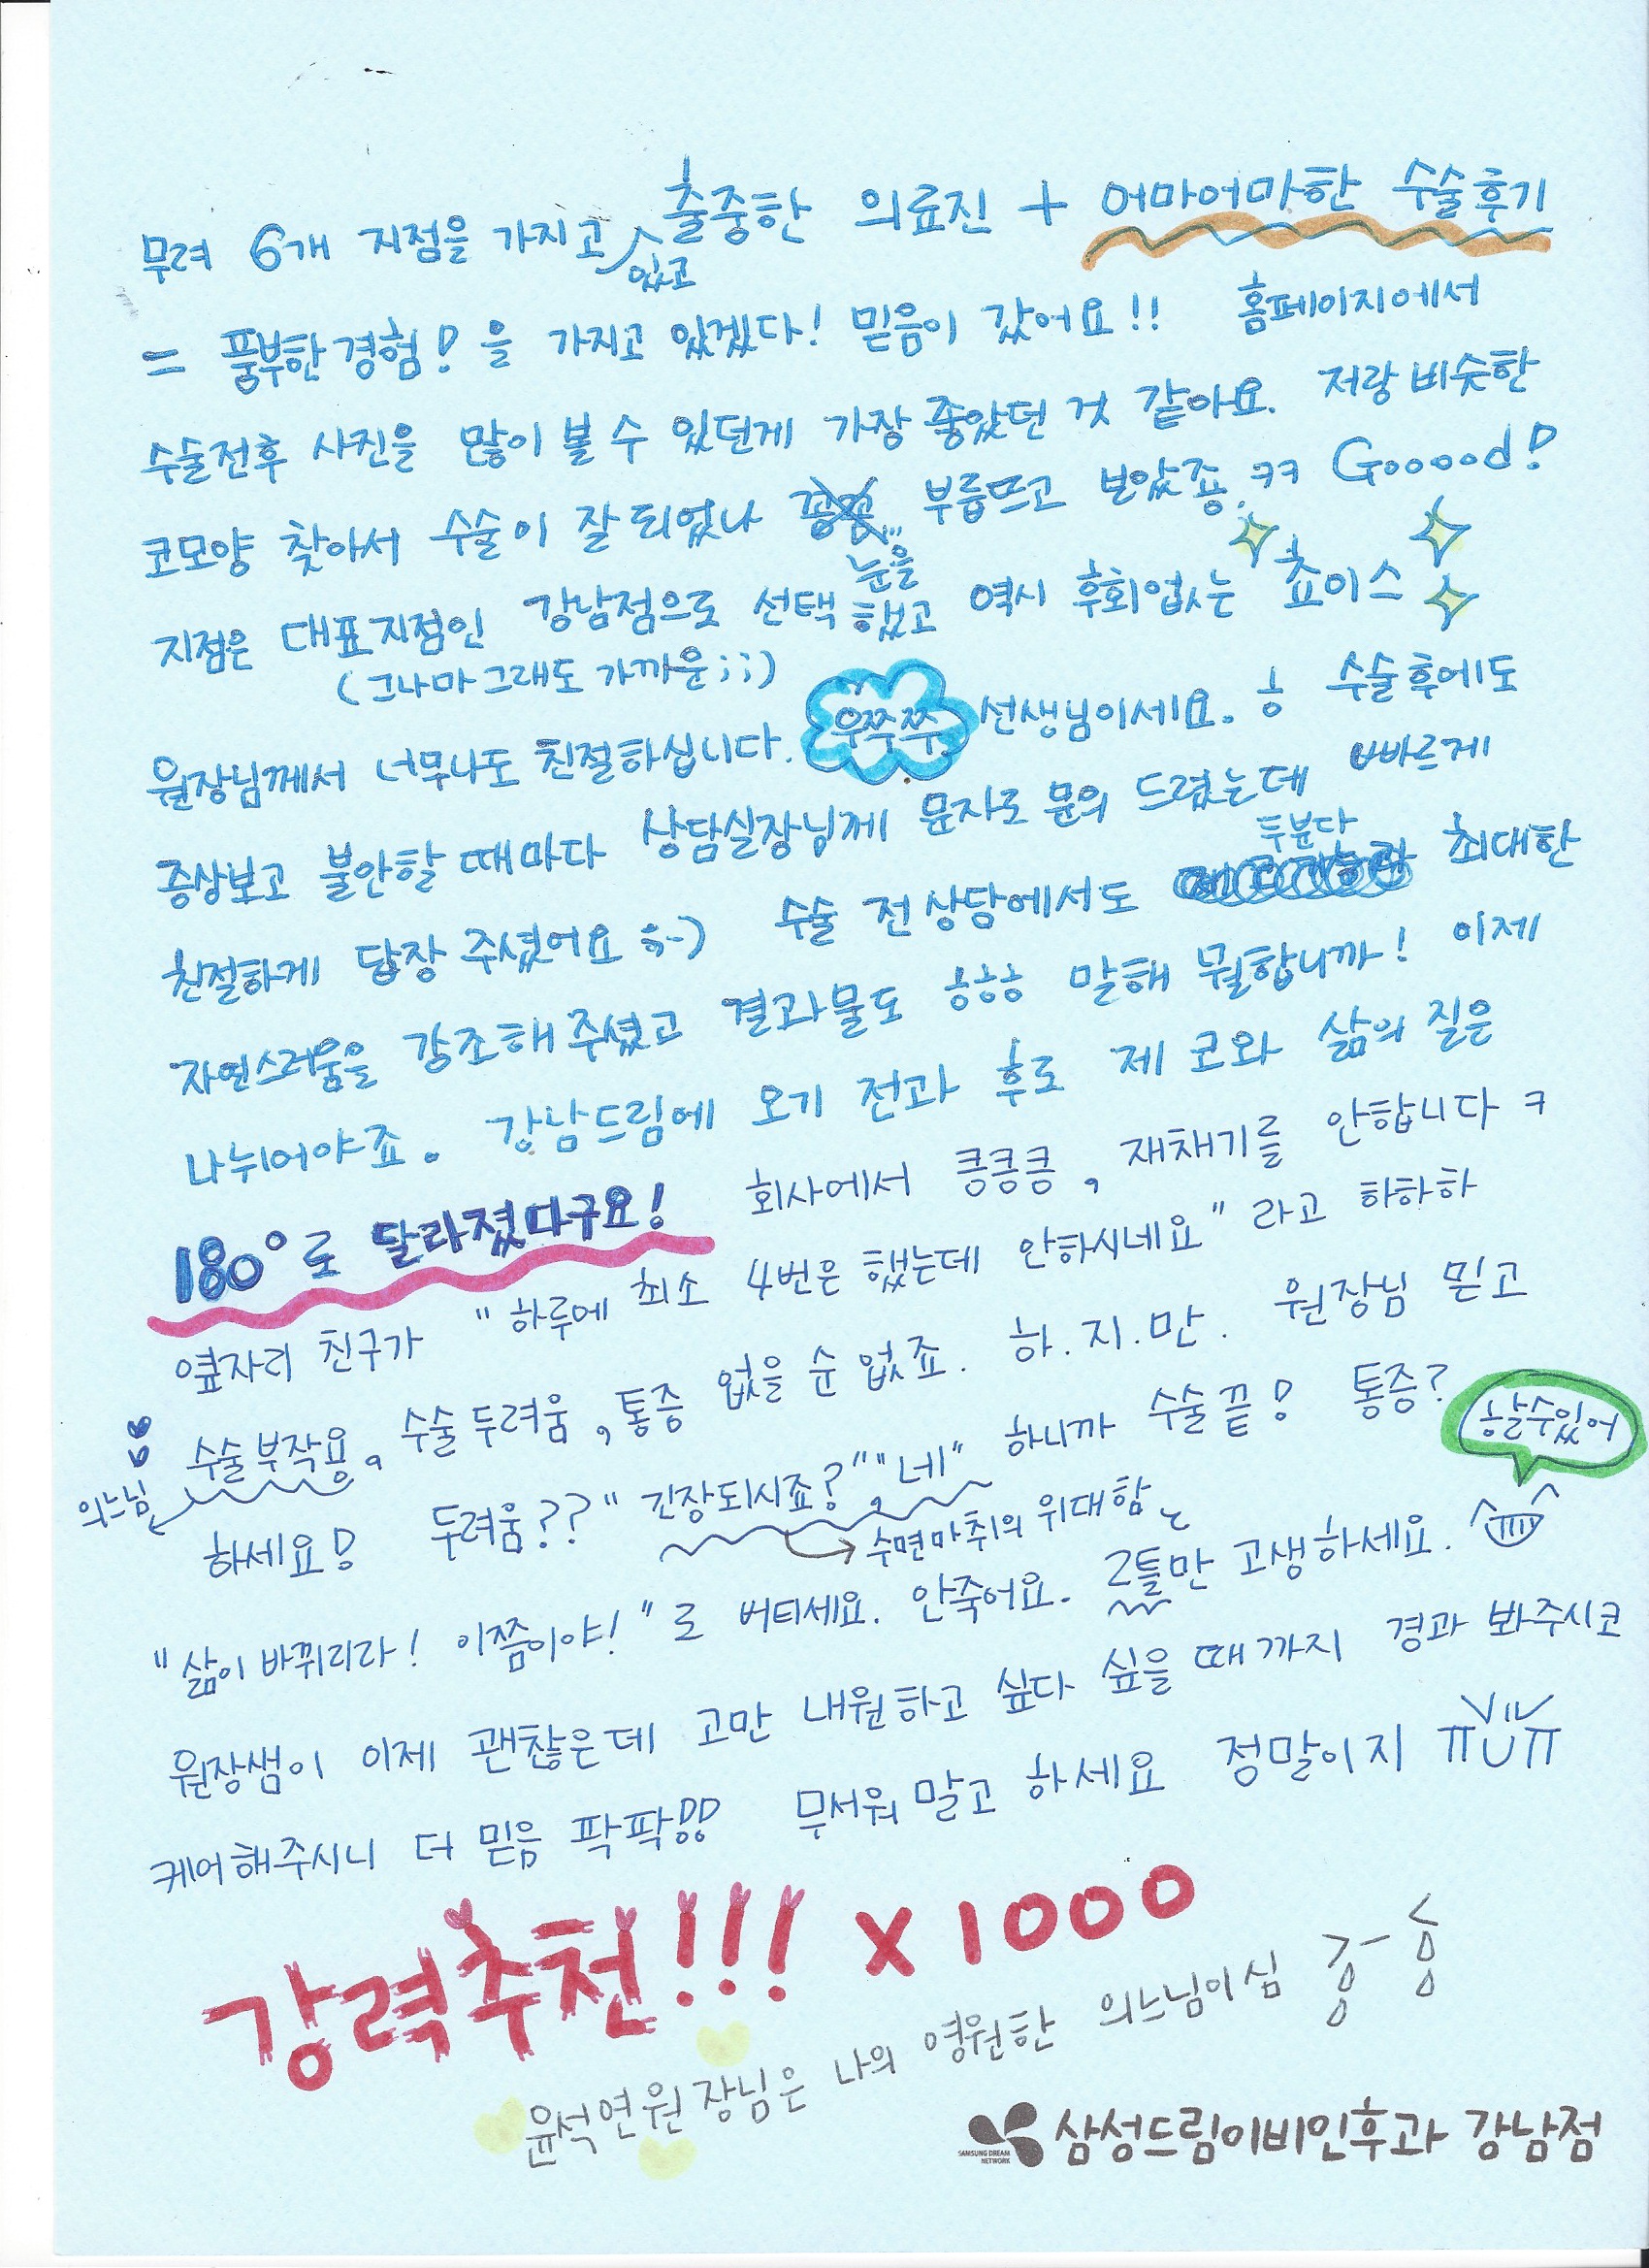 무려 6개 지점을 가지고 있고 출중한 의료진 + 어마어마한 수술후기
= 풍부한 경험! 을 가지고 있겠다! 믿음이 갔어요!! 홈페이지에서
수술전후 사진을 많이 볼 수 있던게 가장 좋았던 것 같아요. 저랑 비슷한
코모양 찾아서 수술이 잘 되었나 눈을 부릅뜨고 보았죵.ㅋㅋ Gooood!
지점은 대표지점인 강남점으로 선택했고 역시 후회없는 쵸이스
(그나마 그래도 가까운;;)
원장님께서 너무나도 친절하십니다. 우쭈쭈 선생님이세요. ㅎ 수술후에도
증상보고 불안할 때마다 상담실장님께 문자로 문의 드렸는데 빠르게
친절하게 답장 주셨어요 ;-) 수술 전 상담에서도 두분다 최대한
자연스러움을 강조해 주셨고 결과물도 ㅎㅎㅎ 말해 뭐합니까! 이제
나뉘어야죠. 강남드림에 오기 전과 후로 제 코와 삶의 질은
180°로 달라졌다구요! 회사에서 킁킁킁, 재채기를 안합니다 ㅋ
옆자리 친구가 "하루에 최소 4번은 했는데 안하시네요" 라고 하하하
수술부작용, 수술두려움, 통증 없을 순 없죠. 하.지.만. 원장님 믿고
의느님
하세요! 두려움?? "긴장되시죠?" "네" 하니까 수술끝! 통증? 할수있어
수면마취의 위대함
"삶이 바뀌리라! 이쯤이야!"로 버티세요. 안죽어요. 2틀만 고생하세요.
원장샘이 이제 괜찮은데 고만 내원하고 싶다 싶을 때까지 경과 봐주시고
케어해주시니 더 믿음 팍팍!! 무서워 말고 하세요 정말이지 ㅠUㅠ
강력추천!!! x 1000
윤석연원장님은 나의 영원한 의느님이심
SAMSUNG DREAM NETWORK
삼성드림이비인후과 강남점